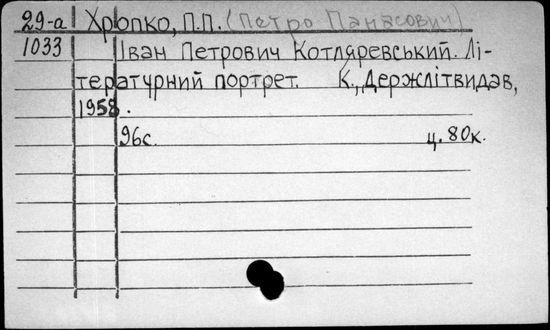 29-а Хропко, П.П. (Петро Панасович)
1033 Іван Петрович Котляревський. Лі-
тературний портрет. К., Держлітвидав,
1958.
96с. ц. 80к.